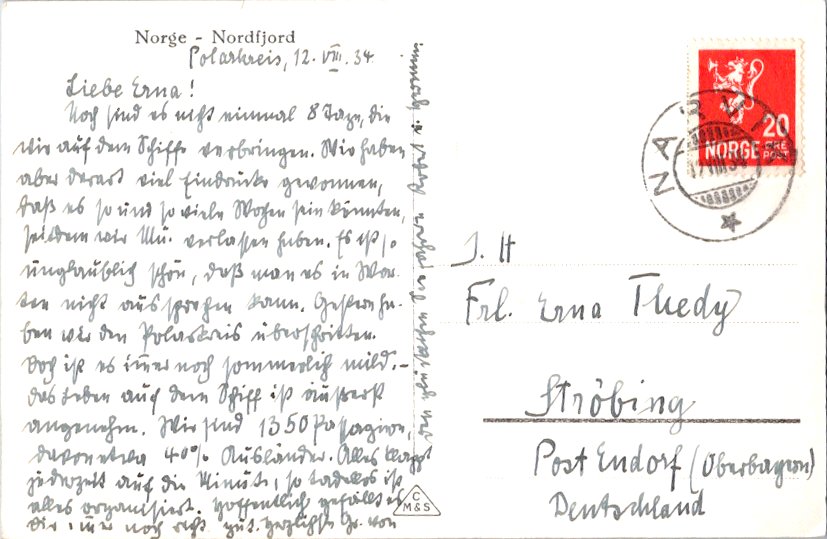 Norge - Nordfjord
Polarkreis, 12. VIII. 34
Liebe Erna!
Noch sind es nicht einmal 8 Tage, die
wir auf dem Schiffe verbringen. Wir haben
aber derart viel Eindrücke gewonnen,
daß es so und so viele Wochen sein könnten,
seitdem wir Mü. verlassen haben. Es ist so
unglaublich schön, daß man es in Wor-
ten nicht aussprechen kann. Gestern ha-
ben wir den Polarkreis überschritten.
Doch ist es immer noch sommerlich mild. -
Das Leben auf dem Schiff ist äußerst
angenehm. Wir sind 1350 Passagiere,
davon etwa 40% Ausländer. Alles klappt
jederzeit auf die Minute, so tadellos ist
alles organisiert. Hoffentlich gefällt es
Dir immer noch recht gut. Herzlichste Gr. von
C
M & S
NORGE
20
ØRE
POST
NARVIK
12 VIII 34
I. H
Frl. Erna Thedy
Ströbing
Post Endorf (Oberbayern)
Deutschland